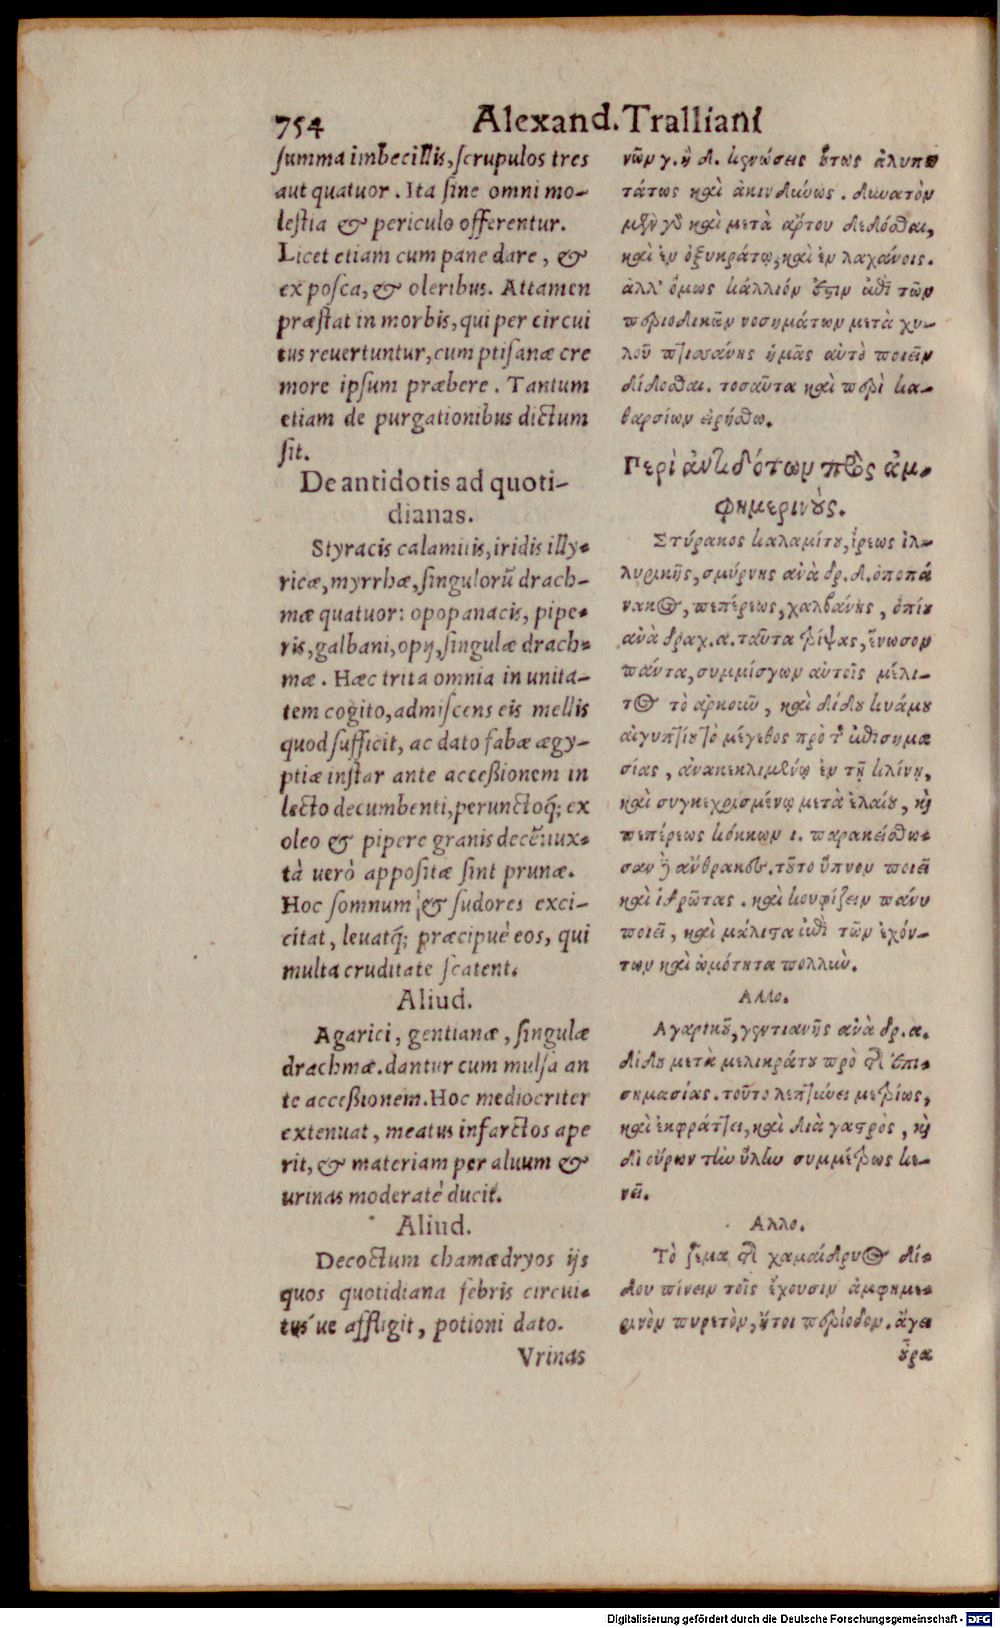 754 Alexand. Tralliani
summa imbecillis, scrupulos tres
aut quatuor. Ita sine omni mo-
lestia & periculo offerentur.
Licet etiam cum pane dare, &
ex posca, & oleribus. Attamen
præstat in morbis, qui per circui
tus reuertuntur, cum ptisanæ cre
more ipsum præbere. Tantum
etiam de purgationibus dictum
sit.
De antidotis ad quoti-
dianas.
Styracis calamitis, iridis illy-
ricæ, myrrhæ, singulorũ drach-
mæ quatuor: opopanacis, pipe-
ris, galbani, opij, singulæ drach-
mæ. Hæc trita omnia in unita-
tem cogito, admiscens eis mellis
quod sufficit, ac dato fabæ ægy-
ptiæ instar ante accessionem in
lecto decumbenti, perunctoq́; ex
oleo & pipere granis decē: iux-
tà uerò appositæ sint prunæ.
Hoc somnum & sudores exci-
citat, leuatq́; præcipuè eos, qui
multa cruditate scatent.
Aliud.
Agarici, gentianæ, singulæ
drachmæ. dantur cum mulsa an
te accessionem. Hoc mediocriter
extenuat, meatus infarctos ape
rit, & materiam per aluum &
urinas moderatè ducit.
Aliud.
Decoctum chamædryos ijs
quos quotidiana febris circui-
tus ue affligit, potioni dato.
Vrinas
νῶν γ. ἢ δ. κενώσεις οὕτως ἀλυπο
τάτως καὶ ἀκινδύνως. δυνατὸν
μὲν γὰρ καὶ μετὰ ἄρτου δεδόσθαι,
καὶ ἐν ὀξυκράτῳ, καὶ ἐν λαχάνοις.
ἀλλ' ὅμως κάλλιόν ἐστιν ἐπὶ τῶν
περιοδικῶν νοσημάτων μετὰ χυ-
λοῦ πτισσάνης ἡμᾶς αὐτὸ ποιεῖν
δίδοσθαι. τοσαῦτα καὶ περὶ κα-
θαρσίων εἰρήσθω.
Περὶ ἀντιδότων πρὸς ἀμ-
φημερινούς.
Στύρακος καλαμίτου, ἴρεως ἰλ-
λυρικῆς, σμύρνης ἀνὰ δρ. δ. ὀποπά
νακος, πεπέρεως, χαλβάνης, ὀπίου
ἀνὰ δραχ. α. ταῦτα τρίψας, ἕνωσον
πάντα, συμμίσγων αὐτοῖς μέλι-
τος τὸ ἀρκοῦν, καὶ δίδου κυάμου
αἰγυπτίου τὸ μέγεθος πρὸ τῆς ἐπισημα
σίας, ἀνακεκλιμένῳ ἐν τῇ κλίνῃ,
καὶ συγκεχρισμένῳ μετὰ ἐλαίου, καὶ
πεπέρεως κόκκων ι. παρακείσθω-
σαν δὲ ἄνθρακες. τοῦτο ὕπνον ποιεῖ
καὶ ἱδρῶτας. καὶ κουφίζειν πάνυ
ποιεῖ, καὶ μάλιστα ἐπὶ τῶν ἐχόν-
των καὶ ὠμότητα πολλήν.
Αλλο.
Αγαρικοῦ, γεντιανῆς ἀνὰ δρ. α.
δίδου μετὰ μελικράτου πρὸ τῆς ἐπι-
σημασίας. τοῦτο λεπτύνει μετρίως,
καὶ ἐκφράττει, καὶ διὰ γαστρὸς, καὶ
δι οὔρων τὴν ὕλην συμμέτρως κε-
νοῖ.
Αλλο.
Τὸ ζέμα τῆς χαμαίδρυος δί-
δου πίνειν τοῖς ἔχουσιν ἀμφημε-
ρινὸν πυρετὸν, ἤτοι περίοδον. ἄγει
οὖρα
Digitalisierung gefördert durch die Deutsche Forschungsgemeinschaft - DFG